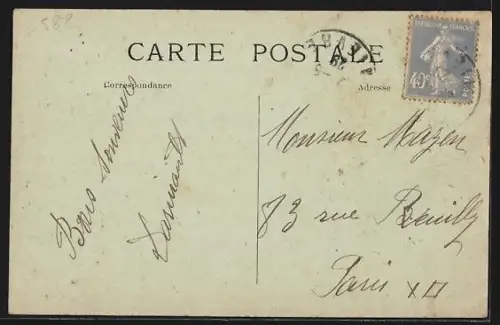 589
CARTE POSTALE
Correspondance
Adresse
REPUBLIQUE FRANÇAISE
40c
POSTES
Bons Souvenirs
Monsieur Mazen
83 rue Reuilly
Paris XII